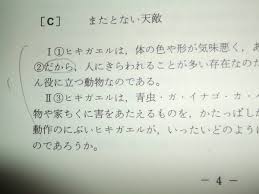 [C] またとない天敵
Ⅰ①ヒキガエルは、体の色や形が気味悪く、あ
②だから、人にきらわれることが多い存在なのだ
ん役に立つ動物なのである。
Ⅱ③ヒキガエルは、青虫・ガ・イナゴ・カ・
物や家ちくに害をあたえるものを、かたっぱしか
動作のにぶいヒキガエルが、いったいどのように
のであろうか。
－4－